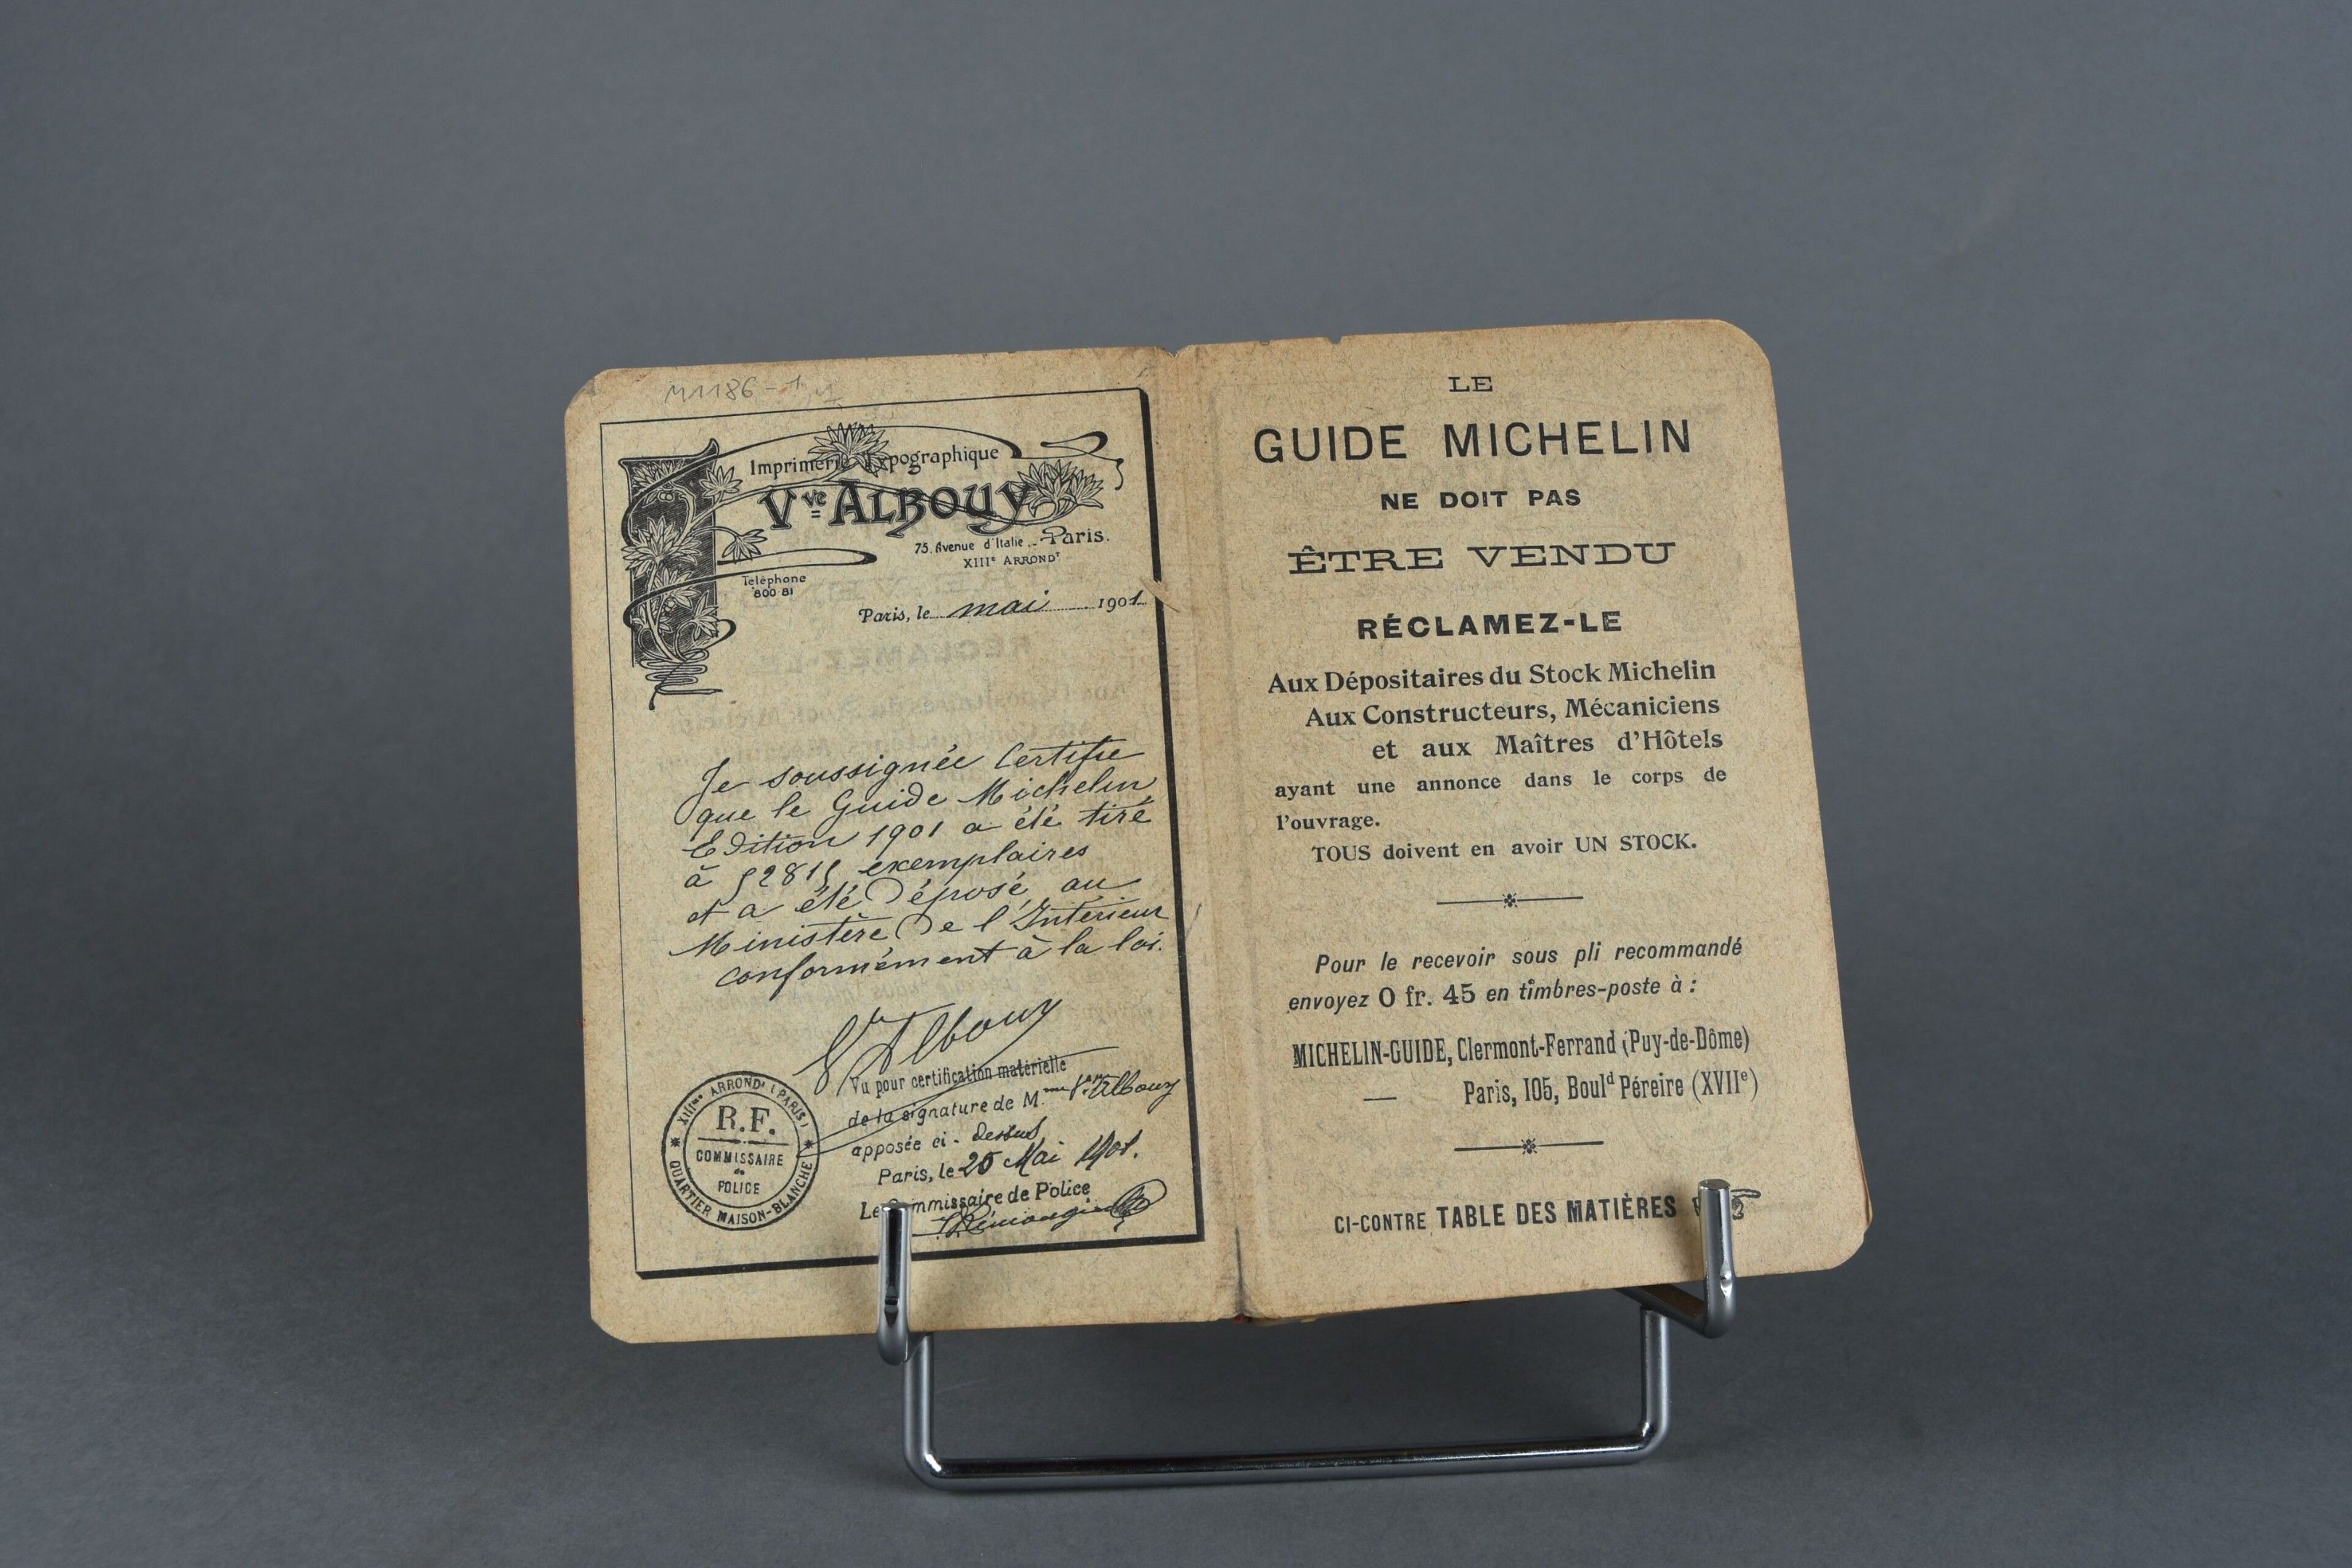 Imprimerie Typographique
Vve ALBOUY
75, Avenue d'Italie .. Paris.
XIIIe ARRONDt
Téléphone
800·81
Paris, le mai 1901
Je soussignée Certifie
que le Guide Michelin
Edition 1901 a été tiré
à 52815 exemplaires
et a été Déposé au
Ministère De l'Intérieur
conformément à la loi.
Ve Albouy
Vu pour certification matérielle
de la signature de Mme Vve Albouy
apposée ci-dessus
Paris, le 25 Mai 1901.
Le Commissaire de Police
XIIIme ARRONDt (PARIS)
R.F.
COMMISSAIRE
de
POLICE
QUARTIER MAISON-BLANCHE
LE
GUIDE MICHELIN
NE DOIT PAS
ÊTRE VENDU
RÉCLAMEZ-LE
Aux Dépositaires du Stock Michelin
Aux Constructeurs, Mécaniciens
et aux Maîtres d'Hôtels
ayant une annonce dans le corps de
l'ouvrage.
TOUS doivent en avoir UN STOCK.
Pour le recevoir sous pli recommandé
envoyez 0 fr. 45 en timbres-poste à :
MICHELIN-GUIDE, Clermont-Ferrand (Puy-de-Dôme)
— Paris, 105, Bould Péreire (XVIIe)
CI-CONTRE TABLE DES MATIÈRES